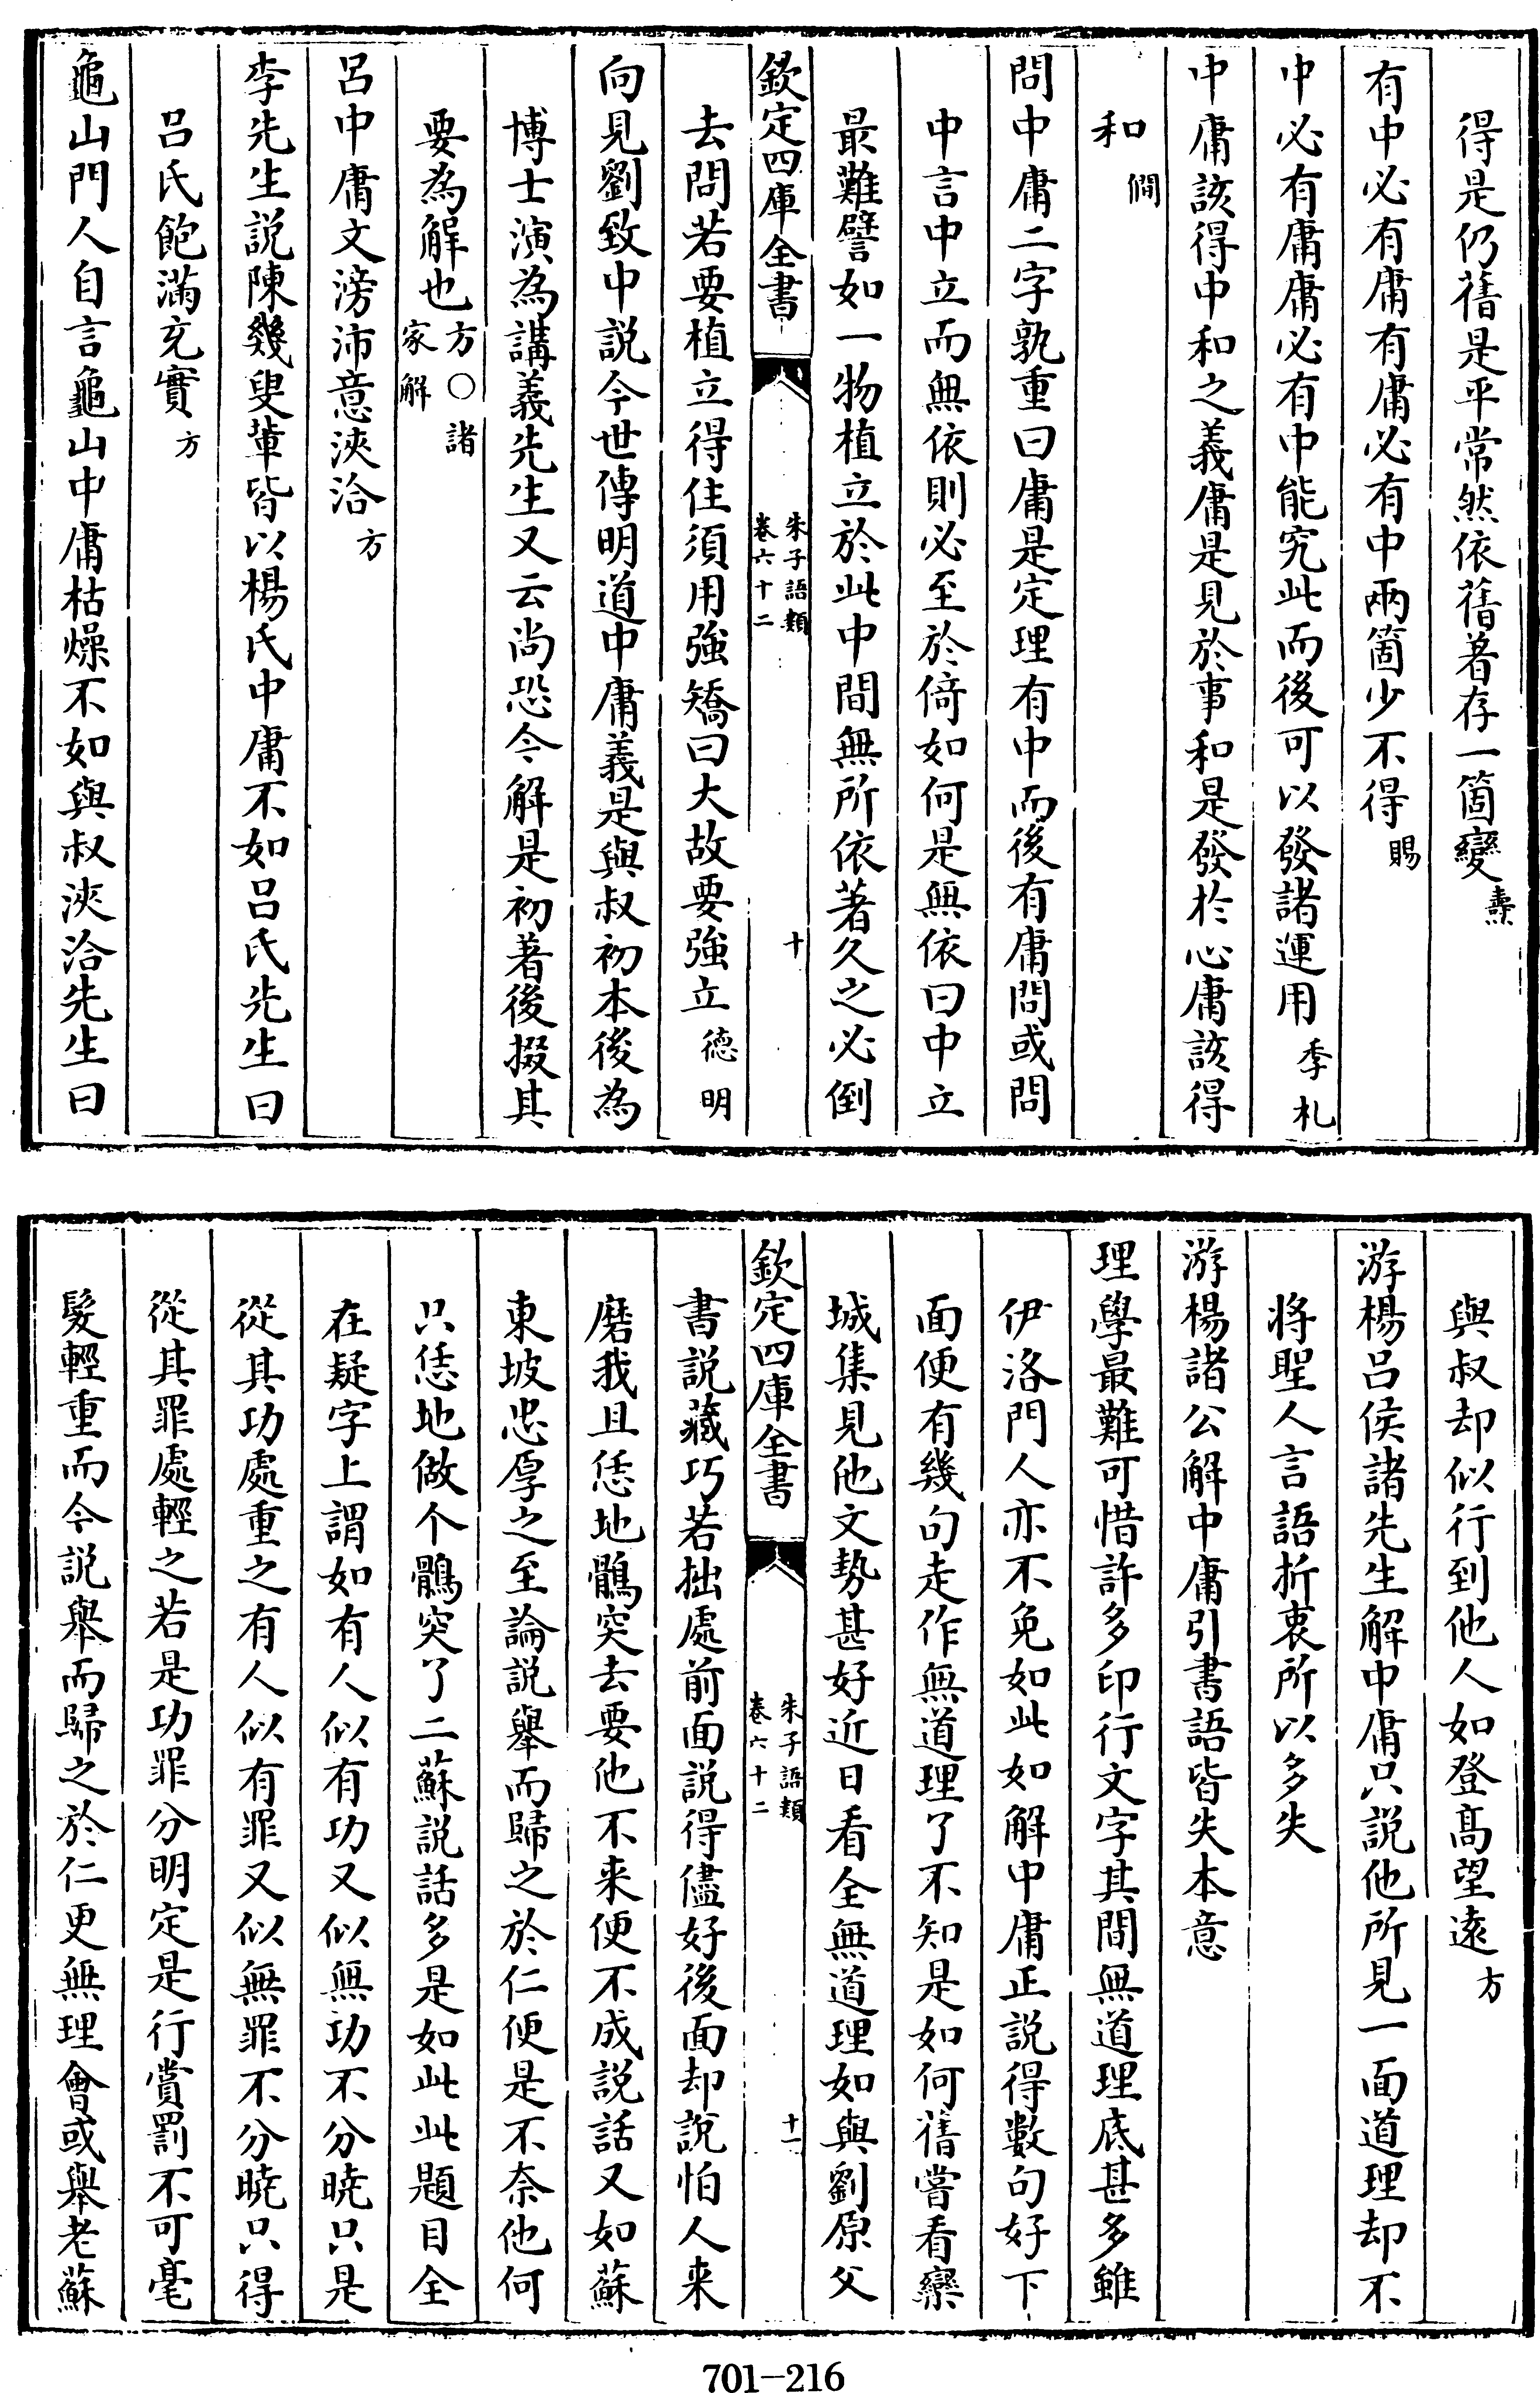 得是仍舊是平常然依舊著存一箇變燾
有中必有庸有庸必有中兩箇少不得賜
中必有庸庸必有中能究此而後可以發諸運用季札
中庸該得中和之義庸是見於事和是發於心庸該得
和僩
問中庸二字孰重曰庸是定理有中而後有庸問或問
中言中立而無依則必至於倚如何是無依曰中立
最難譬如一物植立於此中間無所依著久之必倒
欽定四庫全書
朱子語類
卷六十二
十
去問若要植立得住須用強矯曰大故要強立德明
向見劉致中説今世傳明道中庸義是與叔初本後為
博士演為講義先生又云尚恐今解是初著後掇其
要為解也方○諸
家解
呂中庸文滂沛意浹洽方
李先生説陳幾叟輩皆以楊氏中庸不如呂氏先生曰
呂氏飽滿充實方
龜山門人自言龜山中庸枯燥不如與叔浹洽先生曰
與叔却似行到他人如登髙望逺方
游楊呂侯諸先生解中庸只説他所見一面道理却不
將聖人言語折衷所以多失
游楊諸公解中庸引書語皆失本意
理學最難可惜許多印行文字其間無道理底甚多雖
伊洛門人亦不免如此如解中庸正説得數句好下
面便有幾句走作無道理了不知是如何舊嘗看欒
城集見他文勢甚好近日看全無道理如與劉原父
欽定四庫全書
朱子語類
卷六十二
十一
書説藏巧若拙處前面説得儘好後面却説怕人来
磨我且恁地鶻突去要他不来便不成説話又如蘇
東坡忠厚之至論説舉而歸之於仁便是不奈他何
只恁地做个鶻突了二蘇説話多是如此此題目全
在疑字上謂如有人似有功又似無功不分曉只是
從其功處重之有人似有罪又似無罪不分曉只得
從其罪處輕之若是功罪分明定是行賞罰不可毫
髮輕重而今説舉而歸之於仁更無理會或舉老蘇
701-216